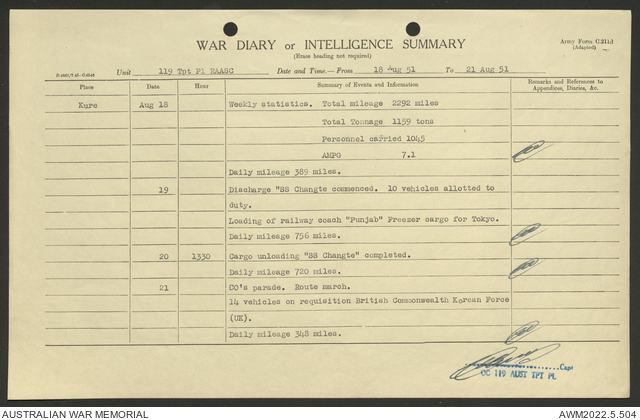 WAR DIARY or INTELLIGENCE SUMMARY
(Erase heading not required)
Army Form C.2118
(Adapted)
Unit 119 Tpt Pl RAASC Date and Time.—From 18 Aug 51 To 21 Aug 51
Place Date Hour Summary of Events and Information Remarks and References to Appendices, Diaries, &c.
Kure Aug 18 Weekly statistics. Total mileage 2292 miles
Total Tonnage 1159 tons
Personnel carried 1045
AMPG 7.1
Daily mileage 389 miles.
19 Discharge "SS Changte commenced. 10 vehicles allotted to
duty.
Loading of railway coach "Punjab" Freezer cargo for Tokyo.
Daily mileage 756 miles.
20 1330 Cargo unloading "SS Changte" completed.
Daily mileage 720 miles.
21 CO's parade. Route march.
14 vehicles on requisition British Commonwealth Korean Force
(UK).
Daily mileage 348 miles.
Capt
OC 119 AUST TPT PL
AUSTRALIAN WAR MEMORIAL AWM2022.5.504